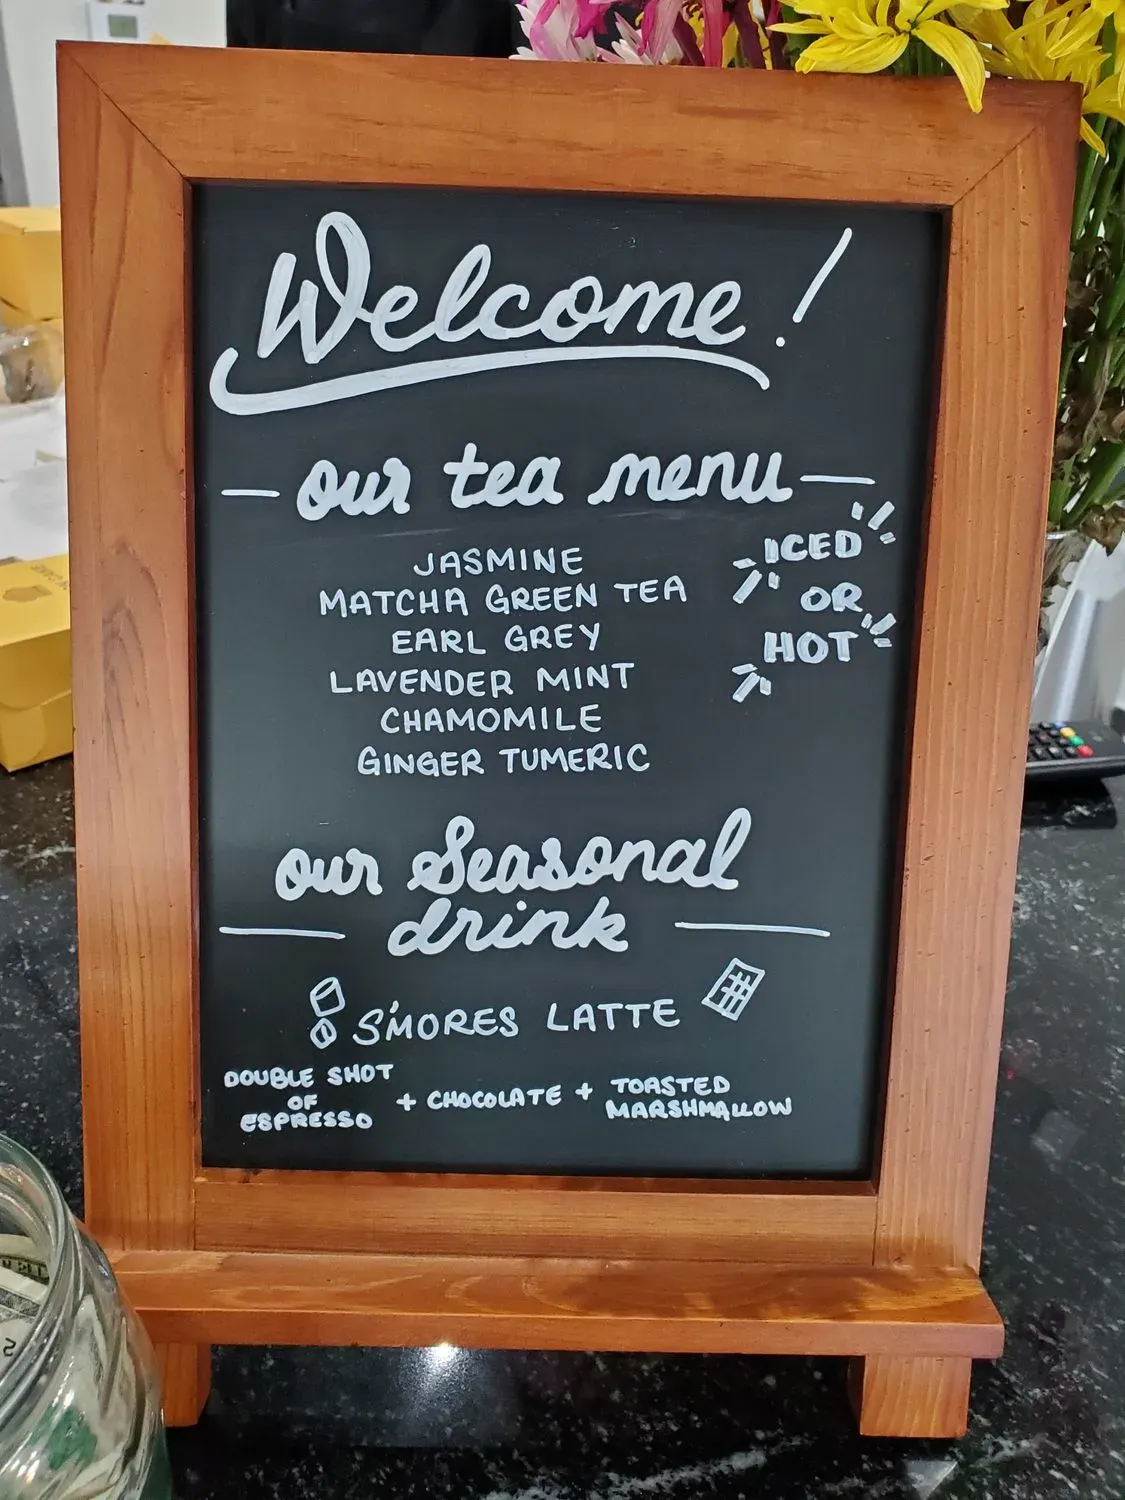 Welcome!
our tea menu
JASMINE
MATCHA GREEN TEA
EARL GREY
LAVENDER MINT
CHAMOMILE
GINGER TUMERIC
ICED
OR
HOT
our Seasonal
drink
S'MORES LATTE
DOUBLE SHOT
OF
ESPRESSO
+ CHOCOLATE +
TOASTED
MARSHMALLOW